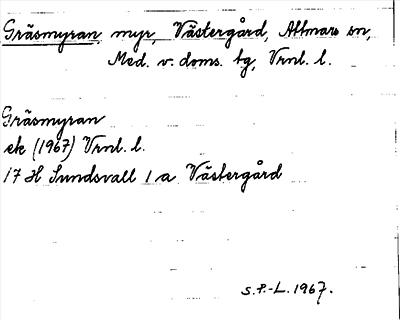 Gräsmyran myr, Västergård, Attmars sn,
Med. v. doms. tg, Vrnl. l.
Gräsmyran
ek (1967) Vrnl. l.
17 H Sundsvall 1 a Västergård
S.P.-L. 1967.